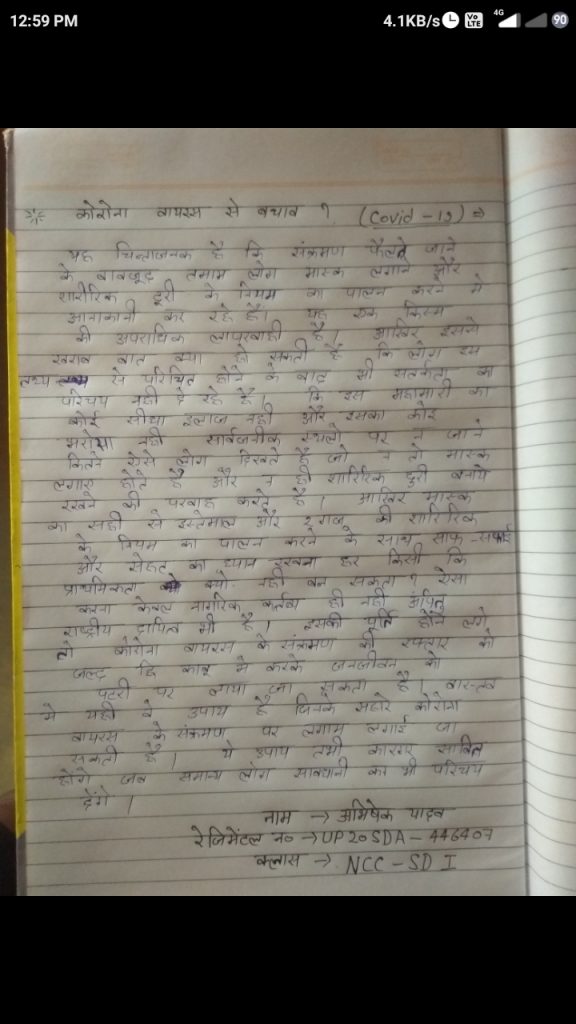 12:59 PM 4.1KB/s Vo LTE 4G 90
कोरोना वायरस से बचाव ? (Covid-19) ⇒
यह चिन्ताजनक है कि संक्रमण फैलते जाने
के बावजूद तमाम लोग मास्क लगाने और
शारीरिक दूरी के नियम का पालन करने मे
आनाकानी कर रहे हैं। यह एक किस्म
की अपराधिक लापरवाही है। आखिर इससे
खराब बात क्या हो सकती है कि लोग इस
तथ्य से परिचित होने के बाद भी सतर्कता का
परिचय नही दे रहे है। कि इस महामारी का
कोई सीधा इलाज नही और इसका कोई
भरोसा नही सार्वजनीक स्थलो पर न जाने
कितने ऐसे लोग दिखते है जो न तो मास्क
लगाए होते है और न ही शारिरिक दुरी बनाये
रखने की परवाह करते है। आखिर मास्क
का सही से इस्तेमाल और 2 गज की शारिरिक
के नियम का पालन करने के साथ साफ-सफाई
और सेहत का ध्यान रखना हर किसी कि
प्राथमिकता क्यो नही बन सकता ? ऐसा
करना केवल नागरिक कर्तव्य ही नही अपितु
राष्ट्रीय दायित्व भी है। इसकी पूर्ति होने लगे
तो कोरोना वायरस के संक्रमण की रफ्तार को
जल्द हि काबू मे करके जनजीवन को
पटरी पर लाया जा सकता है। वास्तव
मे यही वे उपाय है जिनके सहारे कोरोना
वायरस के संक्रमण पर लगाम लगाई जा
सकती है। ये उपाय तभी कारगर साबित
होंगे जब समान्य लोग सावधानी का भी परिचय
देंगे।
नाम → अभिषेक यादव
रेजिमेंटल न० → UP20SDA-446407
क्लास → NCC-SD I